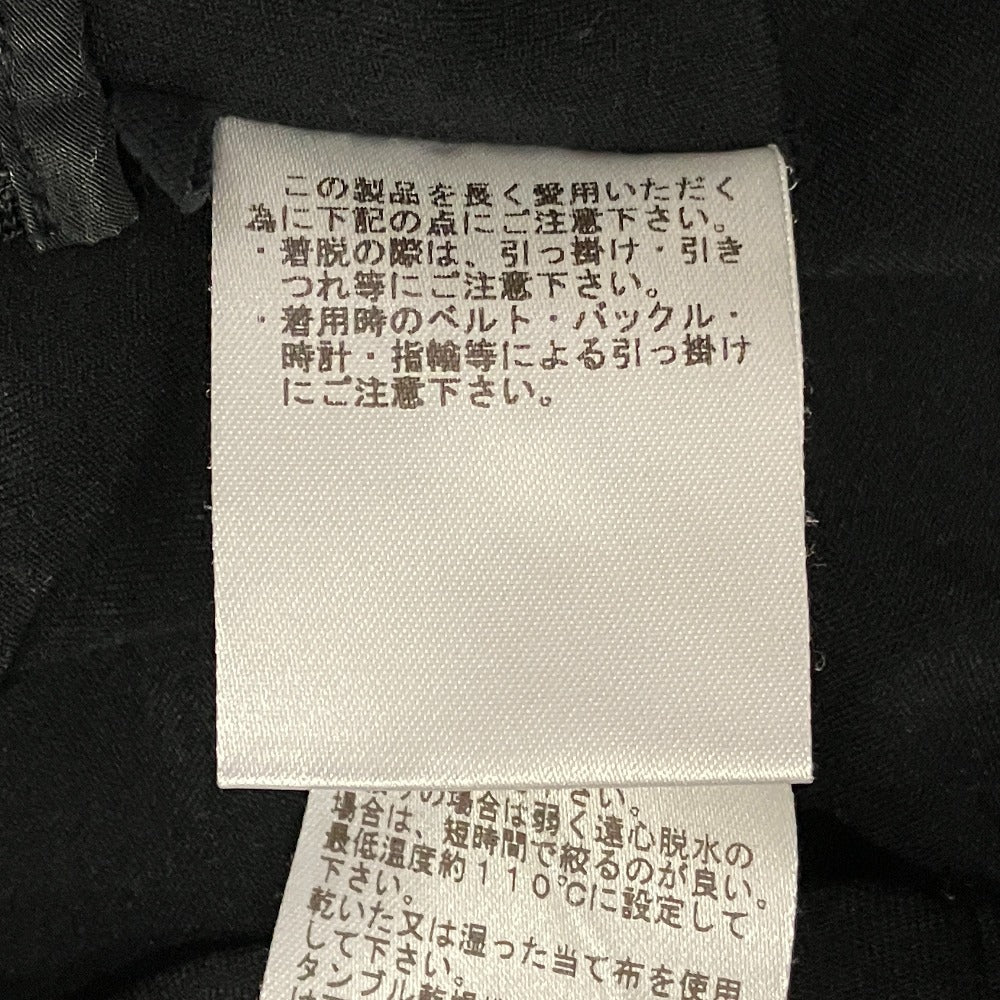 この製品を長く愛用いただく
為に下記の点にご注意下さい。
・着脱の際は、引っ掛け・引き
つれ等にご注意下さい。
・着用時のベルト・バックル・
時計・指輪等による引っ掛け
にご注意下さい。
さい。
の場合は弱く遠心脱水の
場合は、短時間で絞るのが良い。
最低温度約110℃に設定して
下さい。
乾いた又は湿った当て布を使用
して下さい。
タンブル乾燥